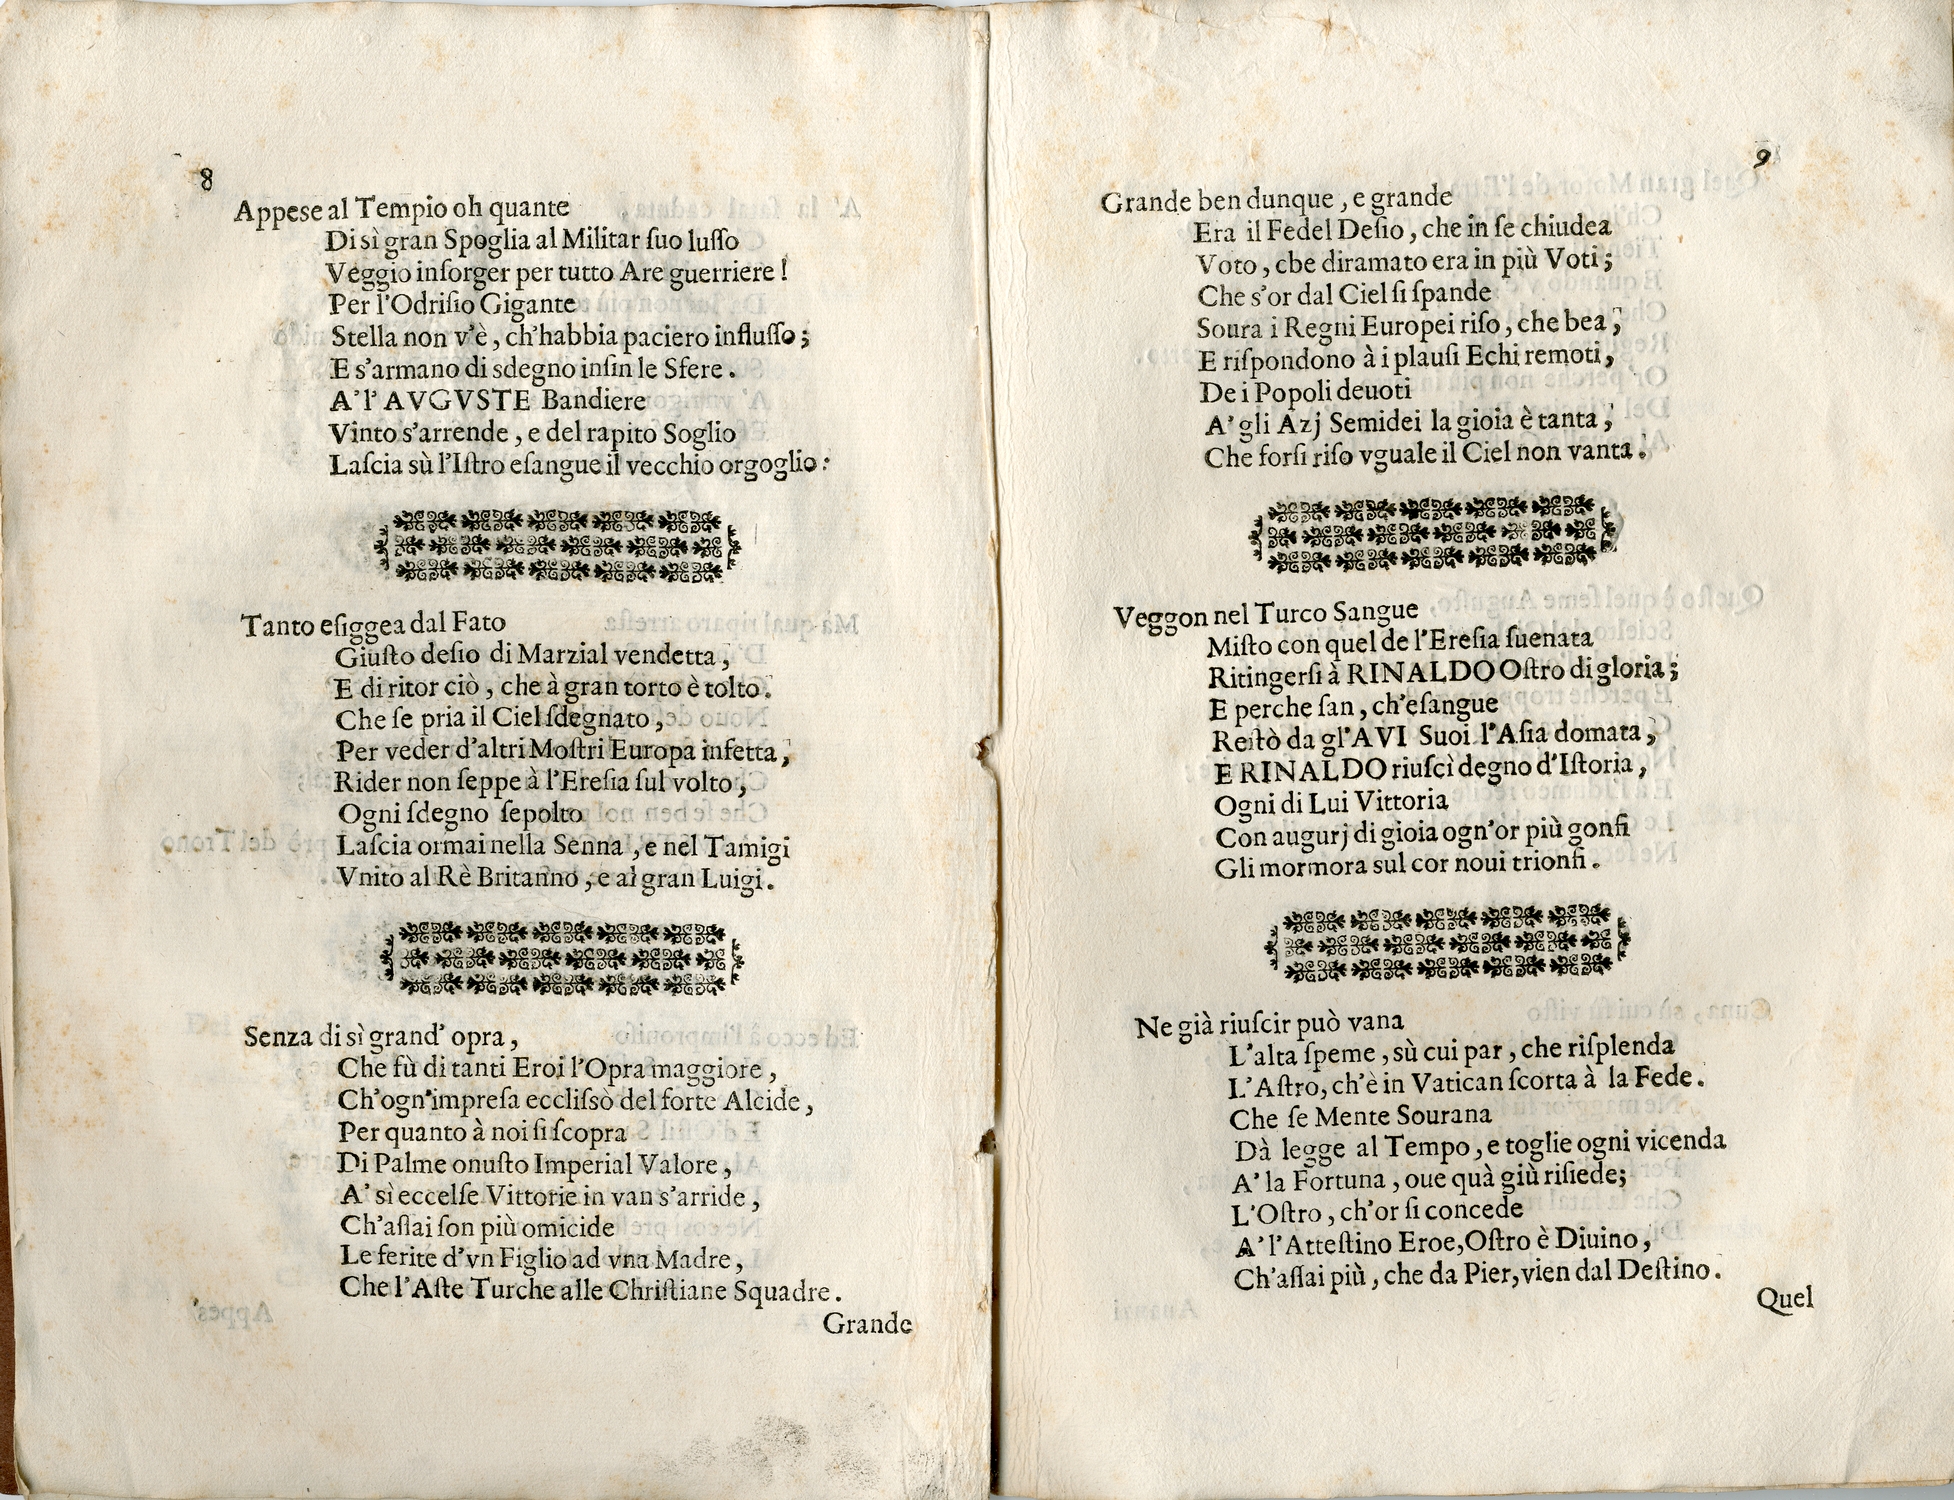 8
Appese al Tempio oh quante
Di sì gran Spoglia al Militar ſuo luſſo
Veggio inſorger per tutto Are guerriere!
Per l'Odriſio Gigante
Stella non v'è, ch'habbia paciero influſſo;
E s'armano di sdegno inſin le Sfere.
A' l' AVGVSTE Bandiere
Vinto s'arrende, e del rapito Soglio
Laſcia sù l'Iſtro eſangue il vecchio orgoglio:
Tanto eſiggea dal Fato
Giuſto deſio di Marzial vendetta,
E di ritor ciò, che à gran torto è tolto.
Che ſe pria il Ciel ſdegnato,
Per veder d'altri Moſtri Europa infetta,
Rider non ſeppe à l'Ereſia ſul volto,
Ogni ſdegno ſepolto
Laſcia ormai nella Senna, e nel Tamigi
Vnito al Rè Britanno, e al gran Luigi.
Senza di sì grand' opra,
Che fù di tanti Eroi l'Opra maggiore,
Ch'ogn'impreſa eccliſsò del forte Alcide,
Per quanto à noi ſi ſcopra
Di Palme onuſto Imperial Valore,
A' sì eccelſe Vittorie in van s'arride,
Ch'aſſai ſon più omicide
Le ferite d'vn Figlio ad vna Madre,
Che l'Aſte Turche alle Chriſtiane Squadre.
Grande
9
Grande ben dunque, e grande
Era il Fedel Deſio, che in ſe chiudea
Voto, che diramato era in più Voti;
Che s'or dal Ciel ſi ſpande
Soura i Regni Europei riſo, che bea,
E riſpondono à i plauſi Echi remoti,
De i Popoli deuoti
A' gli Azj Semidei la gioia è tanta,
Che forſi riſo vguale il Ciel non vanta.
Veggon nel Turco Sangue
Miſto con quel de l'Ereſia ſuenata
Ritingerſi à RINALDO Oſtro di gloria;
E perche ſan, ch'eſangue
Reſtò da gl'AVI Suoi l'Aſia domata,
E RINALDO riuſcì degno d'Iſtoria,
Ogni di Lui Vittoria
Con augurj di gioia ogn'or più gonfi
Gli mormora sul cor noui trionfi.
Ne già riuſcir può vana
L'alta ſpeme, sù cui par, che riſplenda
L'Aſtro, ch'è in Vatican ſcorta à la Fede.
Che ſe Mente Sourana
Dà legge al Tempo, e toglie ogni vicenda
A' la Fortuna, oue quà giù riſiede;
L'Oſtro, ch'or ſi concede
A' l'Atteſtino Eroe, Oſtro è Diuino,
Ch'aſſai più, che da Pier, vien dal Deſtino.
Quel